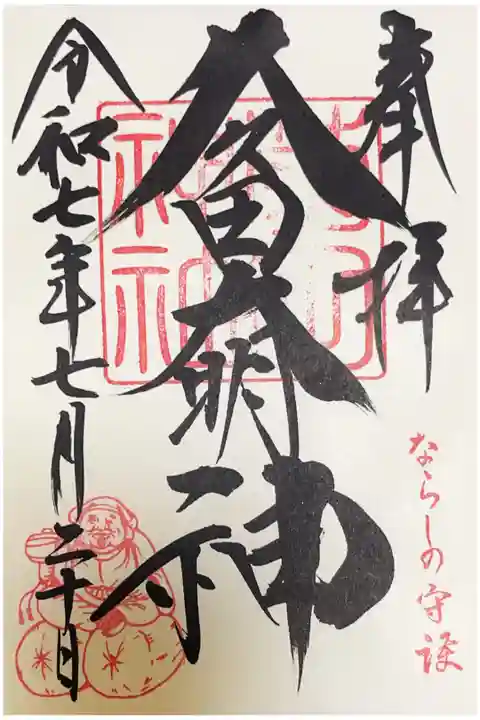 奉拝
久々田大明神
令和七年七月二十日
ならしの守護